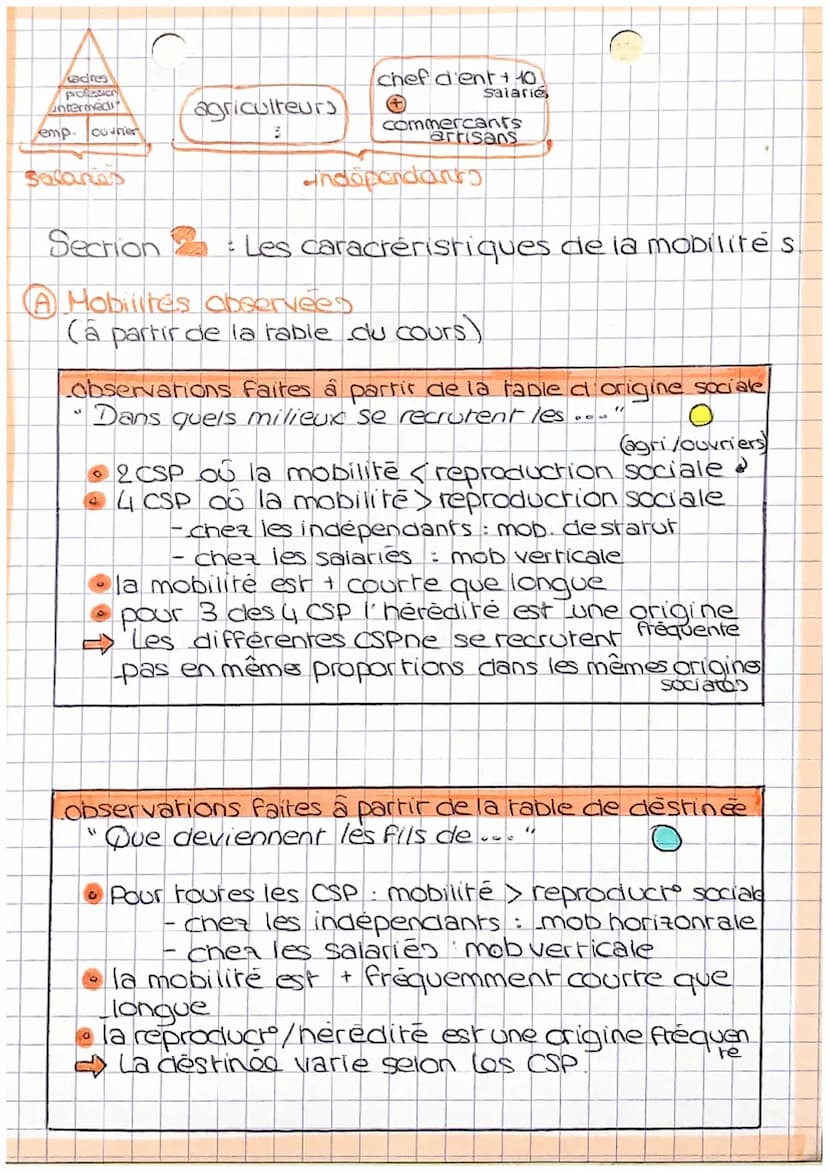 cadres
profession
intermédi°
emp. ouvrier
agriculteurs
:
chef d'ent + 10
salariés
+
commercants
artisans
salariés
indépendants
Section 2 : Les caractéristiques de la mobilité s.
A Mobilités observées
(à partir de la table du cours)
observations faites à partir de la table d'origine sociale
"Dans quels milieux se recrutent les ...."
(agri/ouvriers)
2 CSP où la mobilité < reproduction sociale
4 CSP où la mobilité > reproduction sociale
- chez les indépendants : mob. de statut
- chez les salariés : mob verticale
la mobilité est + courte que longue
pour 3 des 4 CSP l'hérédité est une origine
fréquente
Les différentes CSP ne se recrutent
pas en même proportions dans les mêmes origines
sociales
observations faites à partir de la table de déstinée
"Que deviennent les fils de ...."
Pour toutes les CSP : mobilité > reproduct° sociale
- chez les indépendants : mob horizontale
- chez les salariés : mob verticale
la mobilité est + fréquemment courte que
longue
la reproduct°/hérédité est une origine fréquen
te
La déstinée varie selon les CSP.